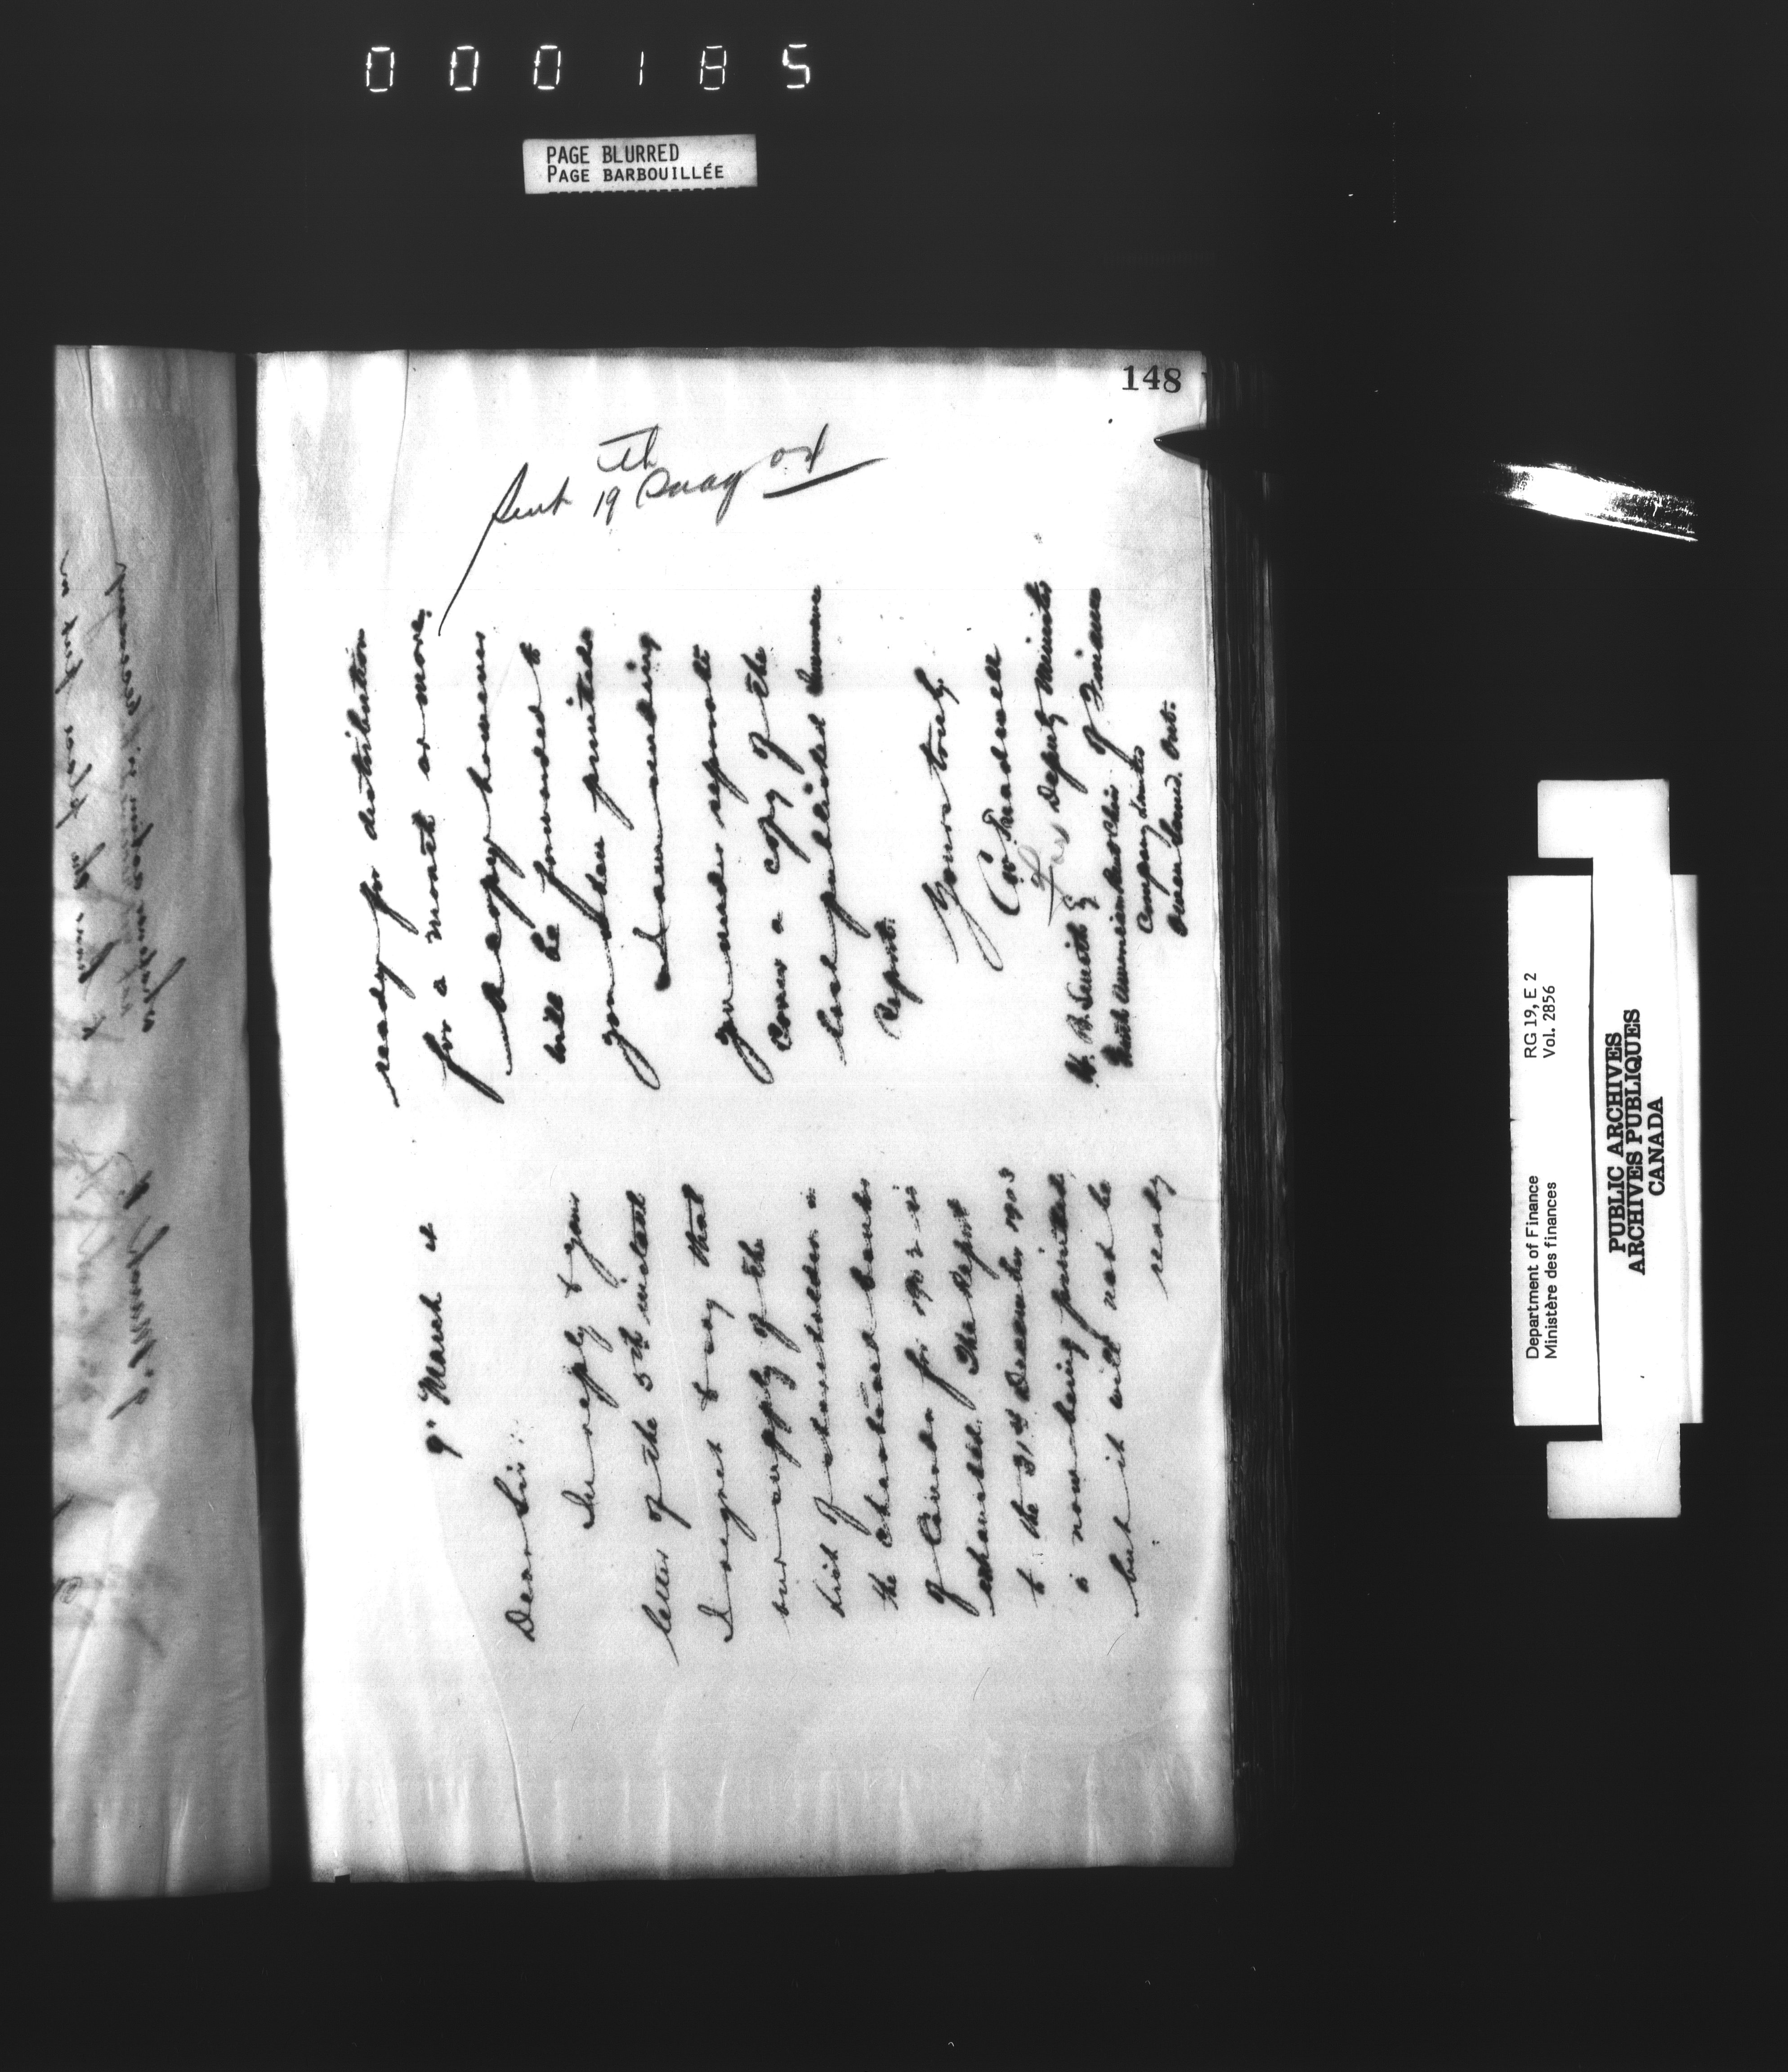 000185
PAGE BLURRED
PAGE BARBOUILLÉE
148
9" March
Dear Sir:
In reply to your
letter of the 5th instant
I regret to say that
our supply of the
list of shareholders in
the chartered banks
of Canada for 1902 is
exhausted. The Report
to the 31st December 1903
is now being printed
but it will not be
ready
ready for distribution
for a month or more.
A copy however
will be forwarded to
you when printed
I am sending
you under separate
cover a copy of the
last published Insurance
Report.
Yours truly,
for Deputy Minister
of Finance
H. B. Smith Esq
North American
Company Limited
Owen Sound. Ont.
Sent 19th May 04
Department of Finance RG 19, E 2
Ministère des finances Vol. 2856
PUBLIC ARCHIVES
ARCHIVES PUBLIQUES
CANADA